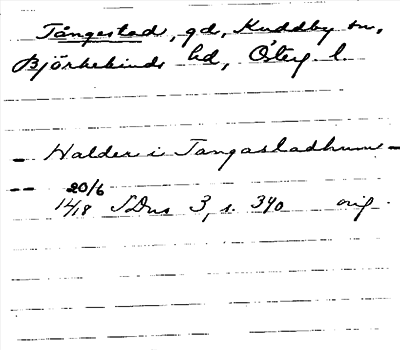 Tångestad, gd, Kuddby sn,
Björkekinds hd, Österg. l.
- Halder i Tangastadhum -
-- 20/6
1418 SDns 3, s. 340 orig.